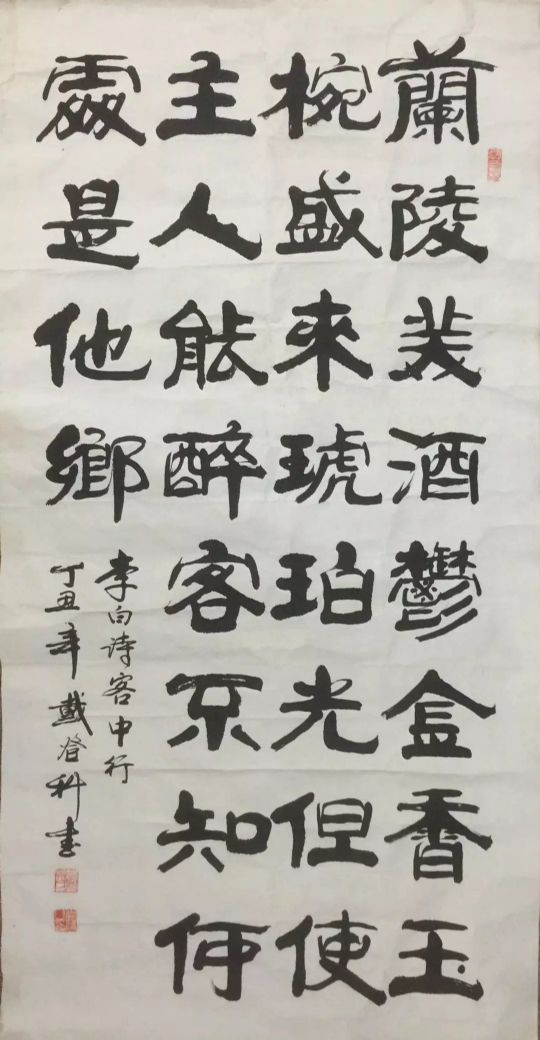 蘭陵美酒鬱金香玉
椀盛來琥珀光但使
主人能醉客不知何
處是他鄉
李白诗客中行
丁丑年戴登科書